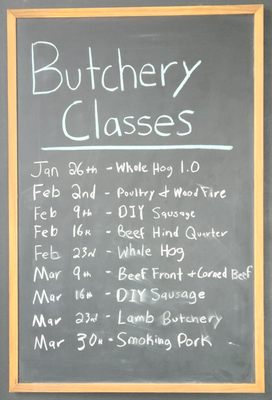 Butchery
Classes
Jan 26th - Whole Hog 1.0
Feb 2nd - Poultry & Wood Fire
Feb 9th - DIY Sausage
Feb 16th - Beef Hind Quarter
Feb 23rd - Whole Hog
Mar 9th - Beef Front + Corned Beef
Mar 16th - DIY Sausage
Mar 23rd - Lamb Butchery
Mar 30th - Smoking Pork